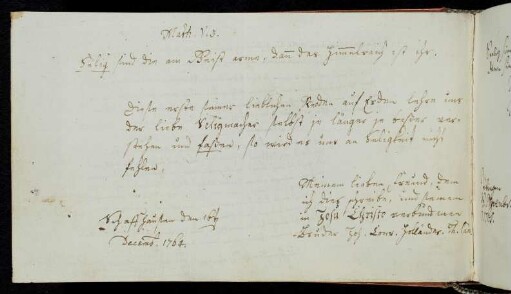 Matth. V. 3.
Selig sind die am Geist arme, dann das Himmelreich ist ihr.
Diese erste seiner lieblichen Reden auf Erden lehre uns
der liebe Seligmacher selbst je länger je besser ver-
stehen und fassen, so wird es uns an Seligkeit nicht
fehlen.
Meinem lieben Freund, dem
ich dies schreibe, und seinem
in Jesu Christo verbundenen
Bruder Joh. Conr. Hollander
Schaffhausen den
Decemb. 1764.